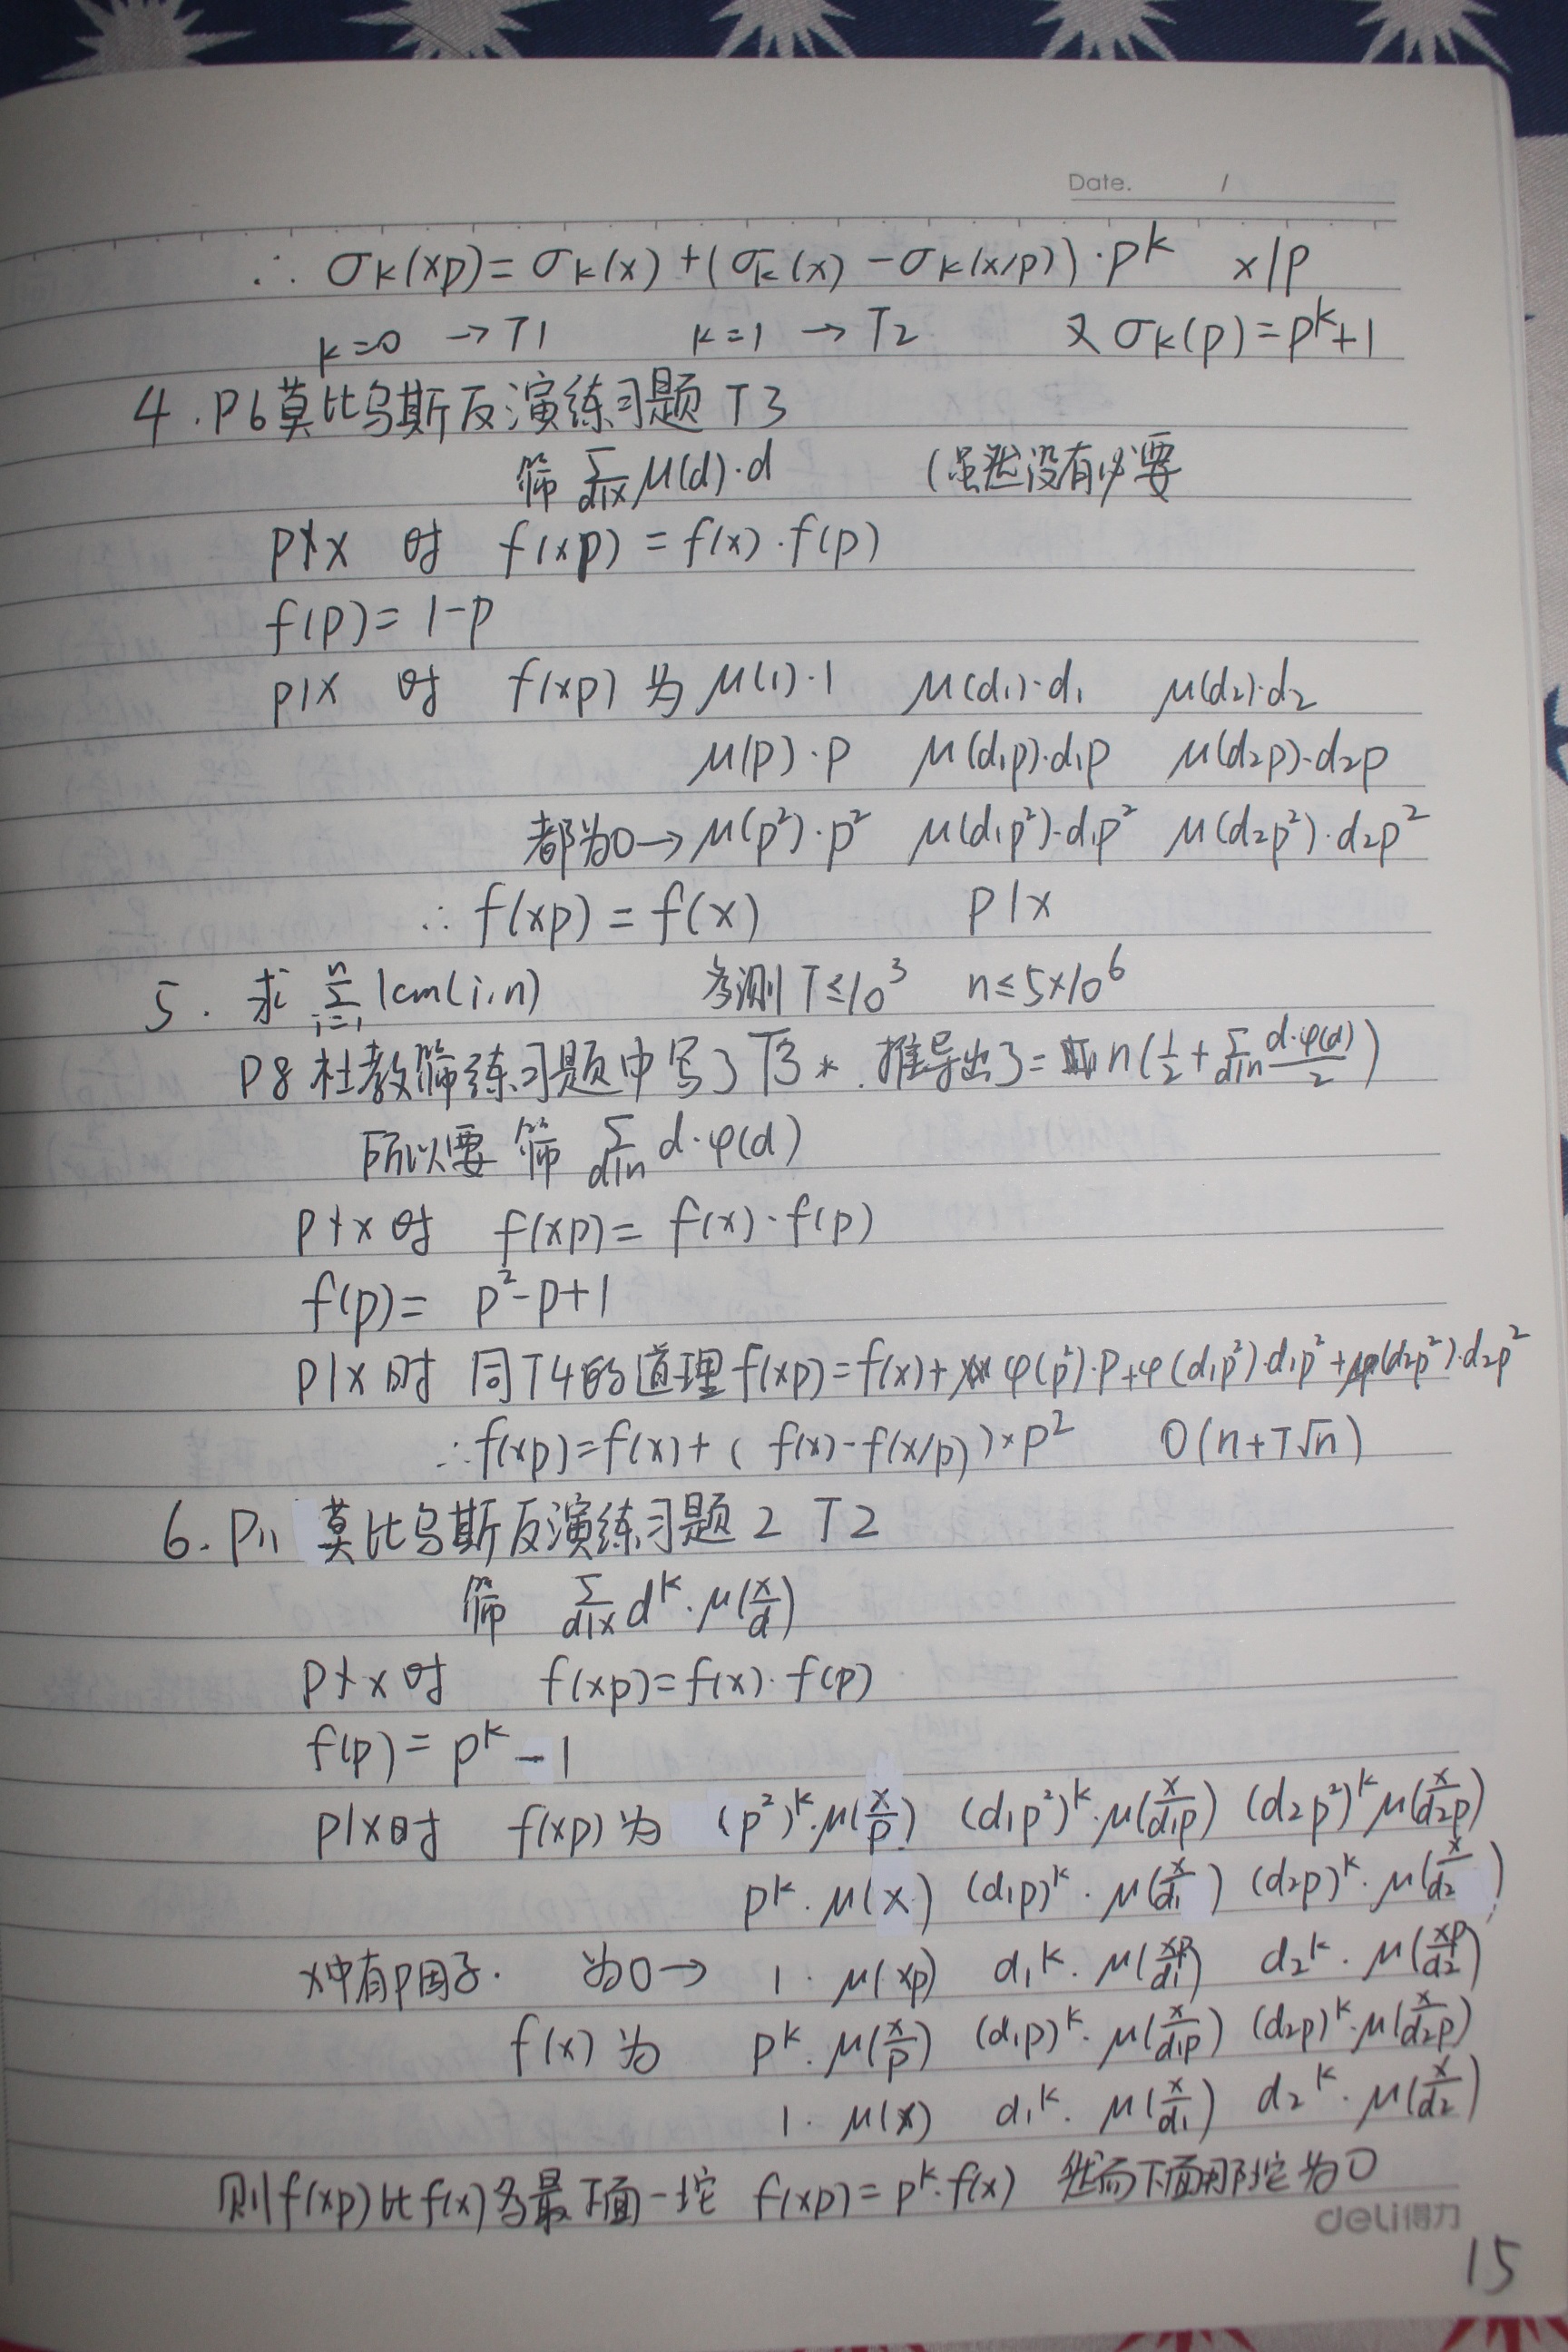 Date. /
∴ σk(xp) = σk(x) + (σk(x) - σk(x/p))·p^k x|p
k=0 → T1 k=1 → T2 又 σk(p) = p^k+1
4. P6 莫比乌斯反演练习题 T3
筛 ∑_{d|x} μ(d)·d (虽然没有必要
p∤x 时 f(xp) = f(x)·f(p)
f(p) = 1-p
p|x 时 f(xp) 为 μ(1)·1 μ(d₁)·d₁ μ(d₂)·d₂
μ(p)·p μ(d₁p)·d₁p μ(d₂p)·d₂p
都为0→ μ(p²)·p² μ(d₁p²)·d₁p² μ(d₂p²)·d₂p²
∴ f(xp) = f(x) p|x
5. 求 ∑_{i=1}^{n} lcm(i,n) 多测 T≤10³ n≤5×10⁶
P8 杜教筛练习题中写了T3*. 推导出了= n(1/2 + ∑_{d|n} d·φ(d)/2)
所以要筛 ∑_{d|n} d·φ(d)
p∤x 时 f(xp) = f(x)·f(p)
f(p) = p²-p+1
p|x 时 同T4的道理 f(xp) = f(x)+ φ(p²)·p+φ(d₁p²)·d₁p²+φ(d₂p²)·d₂p²
∴ f(xp) = f(x) + (f(x) - f(x/p))×p² O(n+T√n)
6. P11 莫比乌斯反演练习题2 T2
筛 ∑_{d|x} d^k·μ(x/d)
p∤x 时 f(xp) = f(x)·f(p)
f(p) = p^k - 1
p|x 时 f(xp) 为 (p²)^k·μ(x/p) (d₁p²)^k·μ(x/(d₁p)) (d₂p²)^k μ(x/(d₂p))
p^k·μ(x) (d₁p)^k·μ(x/d₁) (d₂p)^k·μ(x/d₂)
x中有p因子. 为0→ 1·μ(xp) d₁^k·μ(xp/d₁) d₂^k·μ(xp/d₂)
f(x) 为 p^k·μ(x/p) (d₁p)^k·μ(x/(d₁p)) (d₂p)^k·μ(x/(d₂p))
1·μ(x) d₁^k·μ(x/d₁) d₂^k·μ(x/d₂)
则f(xp)比f(x)多最下面一坨 f(xp) = p^k·f(x) 然而下面那坨为0
deli得力
15